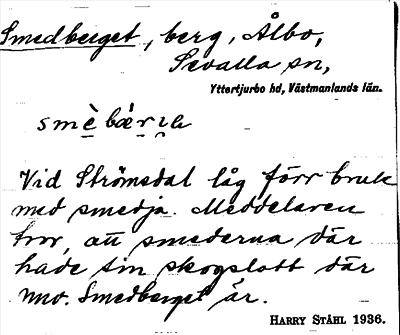 Smedberget, berg, Ålbo,
Sevalla sn,
Yttertjurbo hd, Västmanlands län.
smè̱bǽr̥
Vid Strömsdal låg förr bruk
med smedja. Meddelaren
tror, att smederna där
hade sin skogslott där
nuv. Smedberget är.
HARRY STÅHL 1936.